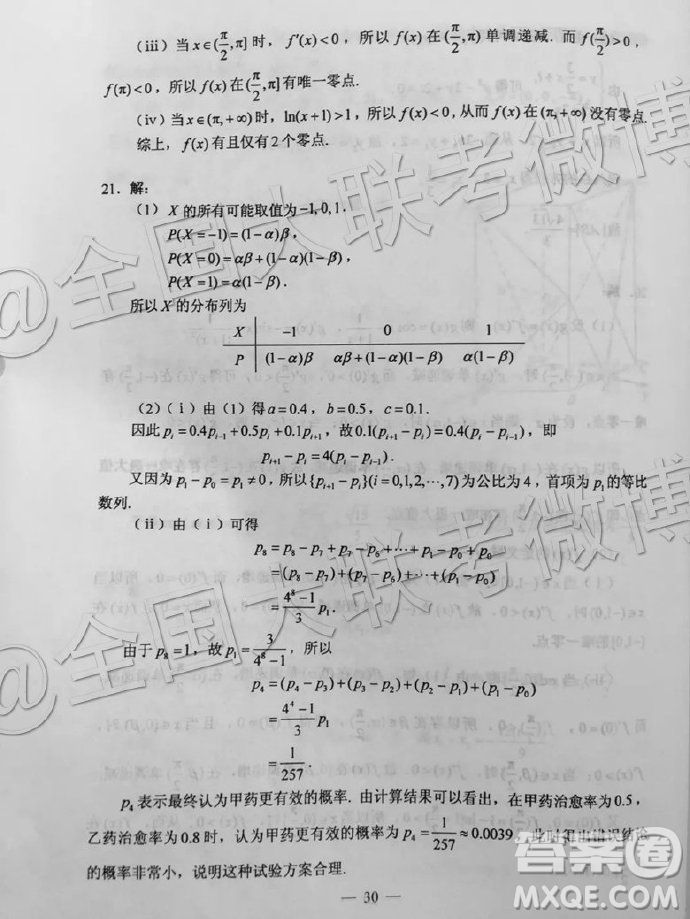 (iii) 当 x∈(π/2, π] 时, f′(x)<0, 所以 f(x) 在 (π/2, π) 单调递减. 而 f(π/2)>0,
f(π)<0, 所以 f(x) 在 (π/2, π] 有唯一零点.
(iv) 当 x∈(π,+∞) 时, ln(x+1)>1, 所以 f(x)<0, 从而 f(x) 在 (π,+∞) 没有零点.
综上, f(x) 有且仅有 2 个零点.
21. 解:
(1) X 的所有可能取值为 −1, 0, 1.
P(X=−1)=(1−α)β,
P(X=0)=αβ+(1−α)(1−β),
P(X=1)=α(1−β).
所以 X 的分布列为
X −1 0 1
P (1−α)β αβ+(1−α)(1−β) α(1−β)
(2) (i) 由 (1) 得 a=0.4, b=0.5, c=0.1.
因此 p_i=0.4p_{i−1}+0.5p_i+0.1p_{i+1}, 故 0.1(p_{i+1}−p_i)=0.4(p_i−p_{i−1}), 即
p_{i+1}−p_i=4(p_i−p_{i−1}).
又因为 p_1−p_0=p_1≠0, 所以 {p_{i+1}−p_i}(i=0,1,2,⋯,7) 为公比为 4, 首项为 p_1 的等比
数列.
(ii) 由 (i) 可得
p_8=p_8−p_7+p_7−p_6+⋯+p_1−p_0+p_0
=(p_8−p_7)+(p_7−p_6)+⋯+(p_1−p_0)
=(4^8−1)/3 p_1.
由于 p_8=1, 故 p_1=3/(4^8−1), 所以
p_4=(p_4−p_3)+(p_3−p_2)+(p_2−p_1)+(p_1−p_0)
=(4^4−1)/3 p_1
=1/257.
p_4 表示最终认为甲药更有效的概率. 由计算结果可以看出, 在甲药治愈率为 0.5,
乙药治愈率为 0.8 时, 认为甲药更有效的概率为 p_4=1/257≈0.0039, 此时得出错误结论
的概率非常小, 说明这种试验方案合理.
— 30 —
@全国大联考微博
答案圈
MXQE.COM